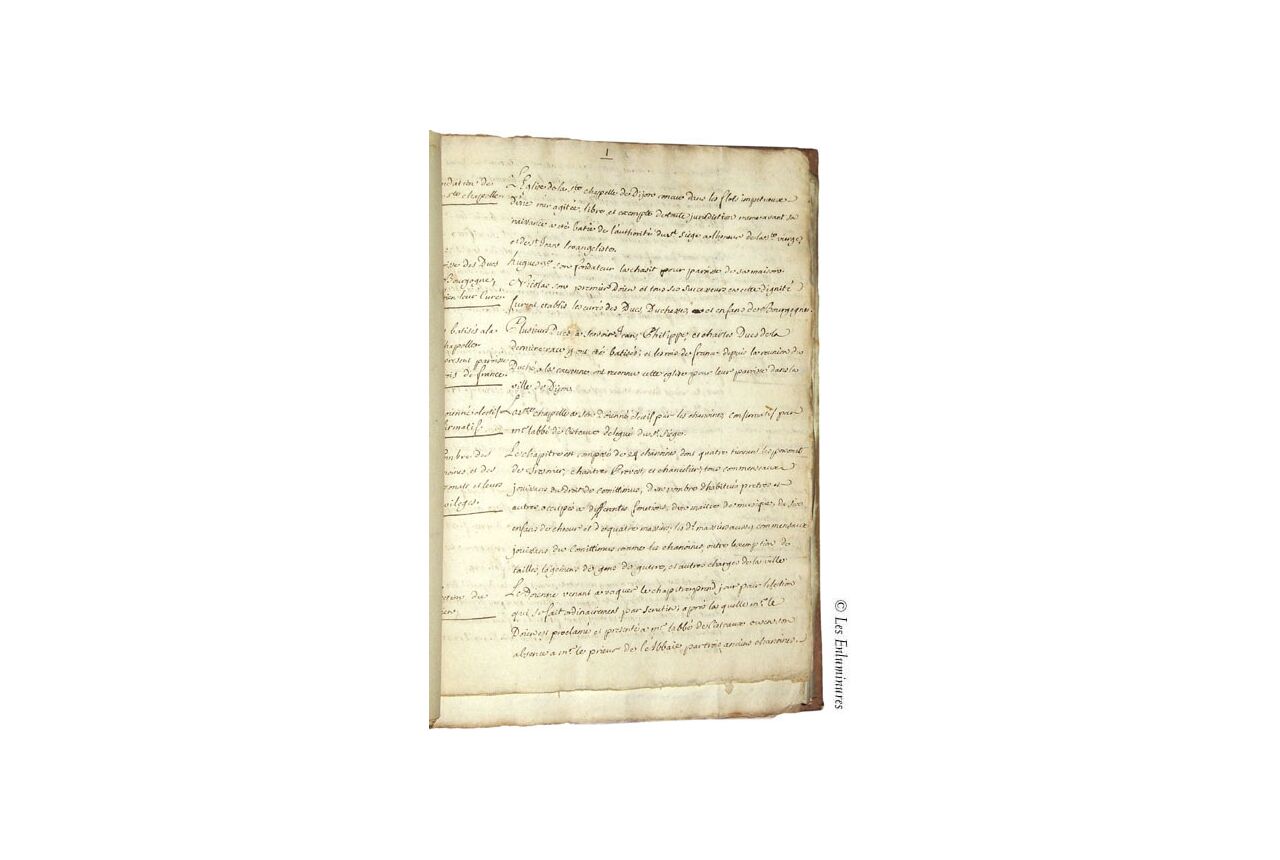 1
L'Eglise de la Ste chapelle de Dijon conceue dans les flots impetueux
d'une mer agitée, libre et exempte de toute jurisdiction mesme avant sa
naissance a esté batie de l'authorité du St Siege a l'honneur de la Ste vierge
et de St Jean l'evangeliste.
hugues son fondateur la choisit pour paroisse de sa maison
Nicolas son premier Doien et tous ses successeurs en cette dignité
furent etablis les curés des Ducs, Duchesses, et enfans de Bourgogne.
Plusieurs Ducs a scavoir Jean, Philippe, et charles Ducs de la
derniere race y ont eté batisés, et les rois de france depuis la reunion du
Duché a la couronne ont reconnu cette eglise pour leur paroisse dans la
ville de Dijon.
La Ste chapelle a son Doienné electif par les chanoines, confirmatif par
mr l'abbé de Citeaux delegué du St Siege.
Le chapitre est composé de 24 chanoines, dont quatre tiennent les personats
de Tresorier, chantre Prevost, et chancelier, tous commensaux
jouissans du droit de comittimus, d'un nombre d'habitués prestres et
autres occupés a differentes fonctions, d'un maitre de musique, de six
enfans de choeur et de quatre ; les dts commensaux
jouissans du Comittimus comme les chanoines, outre l'exemption de
tailles, logemens de gens de guerre, et autres charges de la ville
Le Doienné venant a vaquer le chapitre prend jour pour l'election
qui se fait ordinairement par scrutin, apres laquelle mr le
Doien est proclamé et presenté a mr l'abbé de Citeaux ou en son
absence a mr le prieur de l'Abbaie par trois anciens chanoines.
ndation de
Ste chapelle
des Ducs
Bourgogne,
ien leur Curé
batisés a la
hapelle
present paroisse
ois de france
oienné electif
firmatif
ombre des
noines et des
sonats et leurs
vileges.
ction du
ien.
© Les Enluminures